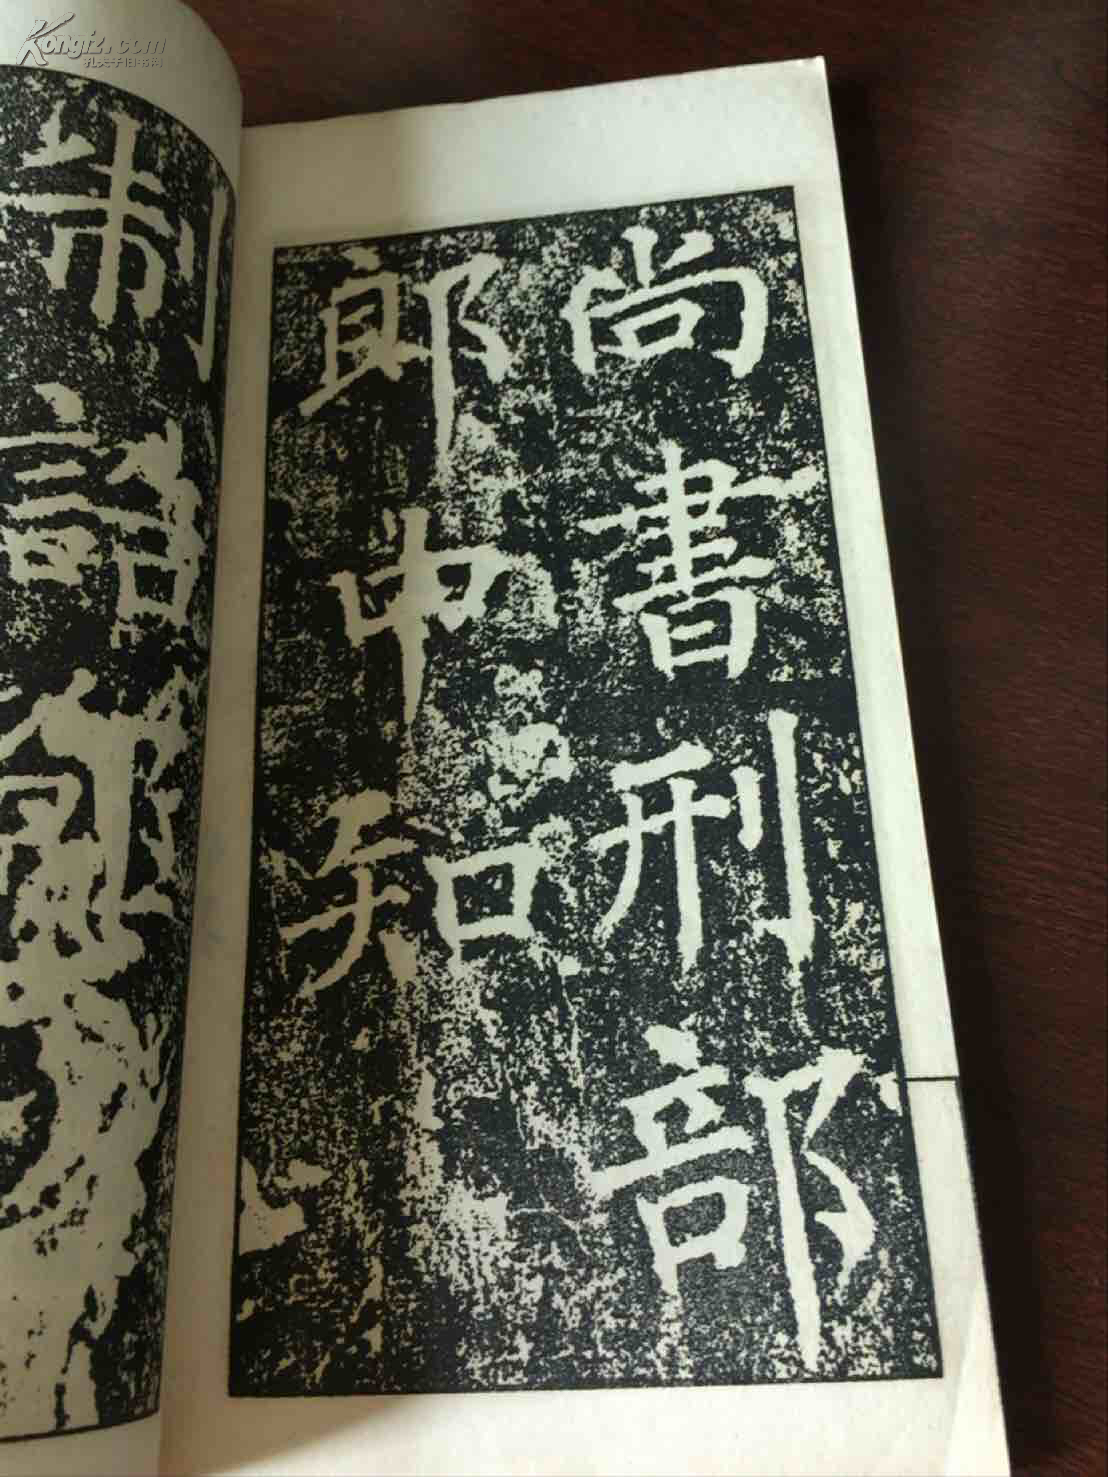 Kongfz.com
孔夫子旧书网
尚書刑部
郎中知
制誥